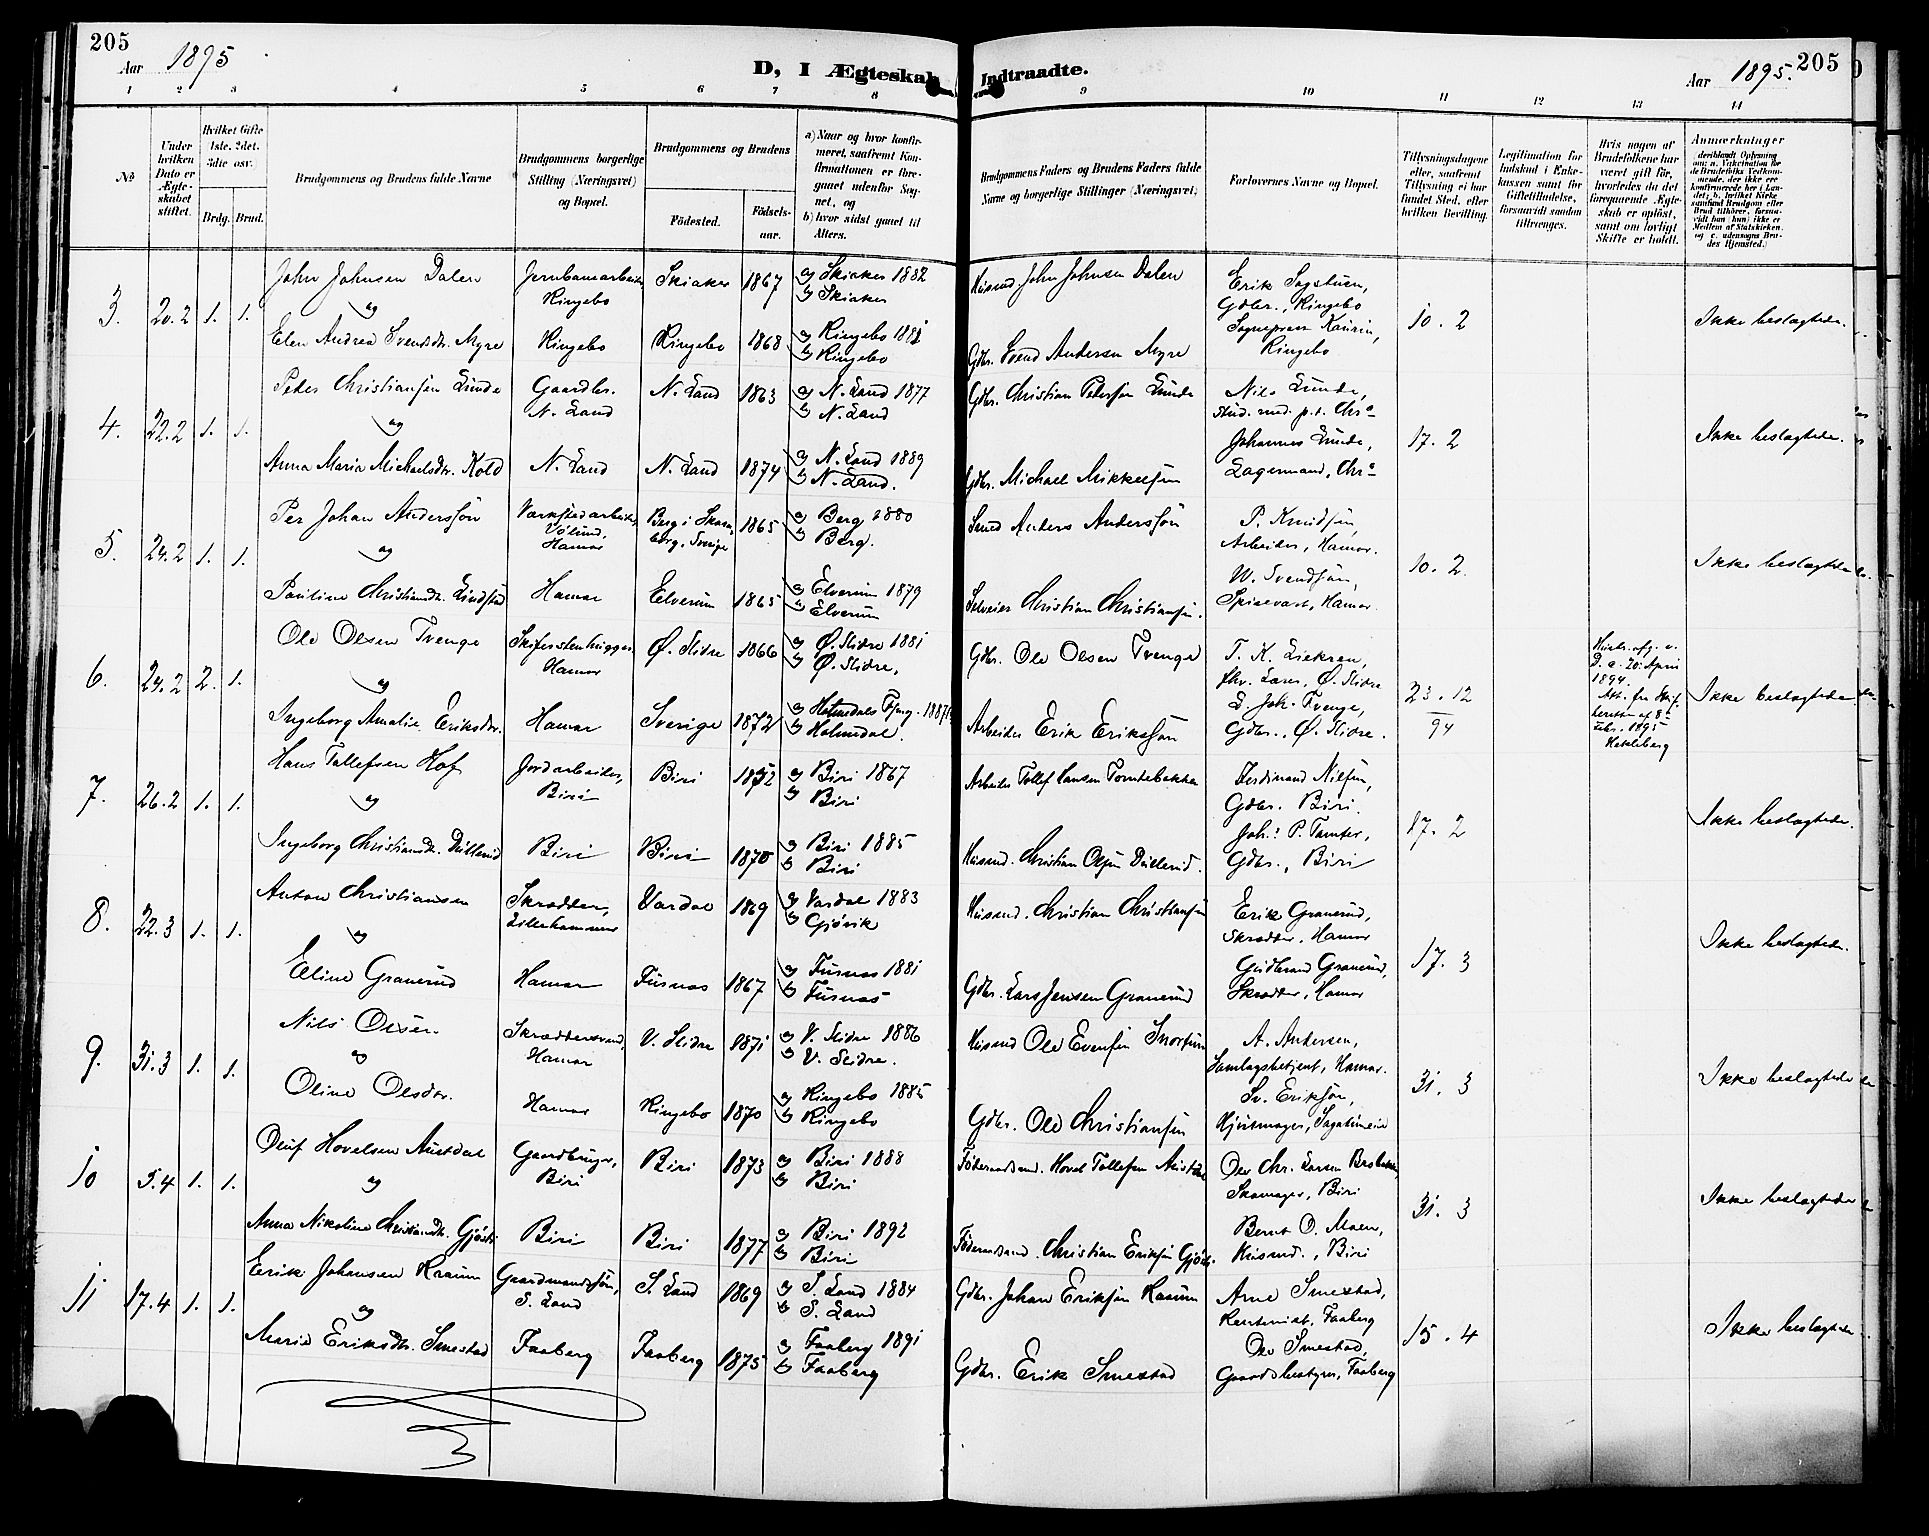 205
Aar 1895
D, I Ægteskab Indtraadte.
Aar 1895.
205
1 2 3 4 5 6 7 8 9 10 11 12 13 14
No
Under hvilken Dato er Ægteskabet stiftet.
Hvilket Gifte 1ste, 2det, 3die osv.
Brdg. Brud.
Brudgommens og Brudens fulde Navne
Brudgommens borgerlige Stilling (Næringsvei) og Bopæl.
Brudgommens og Brudens
Födested.
Födselsaar.
a) Naar og hvor konfirmeret, saafremt Konfirmationen er foregaaet udenfor Sognet, og
b) hvor sidst gaaet til Alters.
Brudgommens Faders og Brudens Faders fulde Navne og borgerlige Stillinger (Næringsvei)
Forlovernes Navne og Bopæl.
Tillysningsdagene eller, saafremt Tillysning ei har fundet Sted, efter hvilken Bevilling.
Legitimation for Indskud i Enkekassen samt for Giftetilladelse, forsaavidt saadan tiltrænges.
Hvis nogen af Brudefolkene har været gift før, hvorledes da det foregaaende Ægteskab er opløst, samt om lovligt Skifte er holdt.
Anmærkninger
(deriblandt Oplysning om: a. Vakcination for de Brudefolks Vedkommende, der ikke ere konfirmerede her i Landet; b. hvilket Kirkesamfund Brudgom eller Brud tilhører, forsaavidt han (hun) ikke er Medlem af Statskirken, og c. udensogns Brudes Hjemsted.)
3. 20.2 1. 1.
John Johnsen Dalen
og
Elen Andrea Svendsdtr. Myre
Jernbanearbeider
Ringebo
Ringebo
Skiaker 1867
Ringebo 1868
a) Skiaker 1882
b) Skiaker
a) Ringebo 1881
b) Ringebo
Husmd. John Johnsen Dalen
Gdbr. Svend Andersen Myre
Erik Sagstuen,
Gdbr., Ringebo
Sogneprest Kaurin,
Ringebo
10. 2
Ikke beslægtede.
4. 22.2 1. 1.
Peder Christiansen Lunde
og
Anna Maria Michaelsdtr. Kold
Gaardbr.
N. Land
N. Land
N. Land 1863
N. Land 1874
a) N. Land 1877
b) N. Land
a) N. Land 1889
b) N. Land.
Gdbr. Christian Pedersen Lunde
Gdbr. Michael Mikkelsen
Nils Lunde,
stud. med. p.t. Chra
Johannes Lunde,
Lagermand, Chra
17. 2
Ikke beslægtede.
5. 24.2 1. 1.
Per Johan Andersson
og
Pauline Christiansdtr. Lindstad
Værkstedarbeider,
Hamar
Hamar
Berg i Skaraborg, Sverige 1865
Elverum 1865
a) Berg 1880
b) Berg.
a) Elverum 1879
b) Elverum
Smed Anders Andersson
Selveier Christian Christiansen.
P. Knudsen,
Arbeider, Hamar.
W. Svendsen,
Spisevært, Hamar.
10. 2.
Ikke beslægtede
6. 24.2 2. 1.
Ole Olsen Tvenge
og
Ingeborg Amalie Eriksdtr.
Skiferstenhugger
Hamar
Hamar
Ø. Slidre 1866
Sverige 1872
a) Ø. Slidre 1881
b) Ø. Slidre,
b) Holmedal.
Gdbr. Ole Olsen Tvenge
Arbeider Erik Eriksson
Ø. Slidre
Gdbr., Ø. Slidre.
23. 12
94
20. April
1894.
1895
Ikke beslægtede
7. 26.2 1. 1.
Hans Tollefsen Hof
og
Ingeborg Christiansdtr. Dullerud
Jordarbeider,
Biri
Biri
Biri 1852
Biri 1870
a) Biri 1867
b) Biri
a) Biri 1885
b) Biri
Arbeider Tollef Hansen Tomtebakken
Husmd. Christian Olsen Dullerud.
Ferdinand Nilsen,
Gdbr. Biri.
Joh. P. Tomter,
Gdbr., Biri
17. 2
Ikke beslægtede.
8. 22.3 1. 1.
Anton Christiansen
og
Eline Granerud
Skrædder,
Lillehammer
Hamar
Vardal 1869
Furnæs 1867
a) Vardal 1883
b) Gjövik
a) Furnæs 1881
b) Furnæs
Husmd. Christian Christiansen
Gdbr. Lars Jensen Granerud
Erik Granerud,
Skrædder, Hamar
Gudbrand Granerud,
Skrædder, Hamar
17. 3
Ikke beslægtede.
9. 31.3 1. 1.
Nils Olsen
og
Oline Olsdtr.
Skræddersvend,
Hamar
Hamar
V. Slidre 1871
Ringebo 1870
a) V. Slidre 1886
b) V. Slidre.
a) Ringebo 1885
b) Ringebo
Husmd Ole Evensen
Gdbr. Ole Christiansen
A. Andersen,
Samlagsbetjent, Hamar.
Sv. Eriksen,
Hjulmager,
31. 3
Ikke beslægtede
10 5.4 1. 1.
Oluf Hovelsen Austdal
og
Anna Nikoline Christiansdtr. Gjösli
Gaardbruger,
Biri
Biri
Biri 1873
Biri 1877
a) Biri 1888
b) Biri
a) Biri 1892
b) Biri
Föderaadsmd. Hovel Tollefsen Austdal
Föderaadsmd. Christian Eriksen Gjösli.
Ole Chr. Larsen
Skomager, Biri
Bernt O. Moen,
Husmd., Biri
31. 3
Ikke beslægtede
11 17.4 1. 1.
Erik Johansen Raaum
og
Marie Eriksdtr. Smestad
Gaardmandssön,
S. Land
Faaberg
S. Land 1869
Faaberg 1875
a) S. Land 1884
b) S. Land
a) Faaberg 1891
b) Faaberg
Gdbr. Johan Eriksen Raaum
Gdbr. Erik Smestad
Arne Smestad,
Kontorist, Faaberg
Ole Smestad,
Gaardsbestyrer, Faaberg
15. 4
Ikke beslægtede